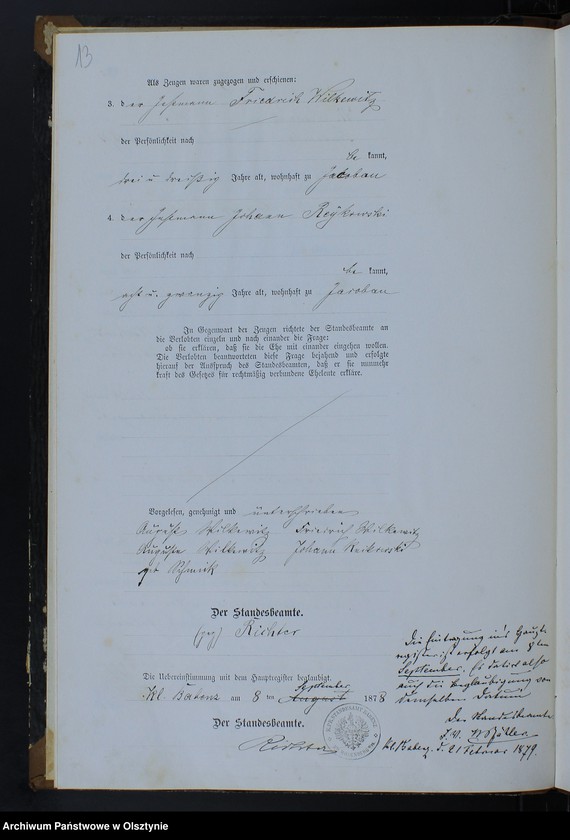 13
Als Zeugen waren zugezogen und erschienen:
3. der Friedrich Wilkewitz
der Persönlichkeit nach
be kannt,
drei u dreißig Jahre alt, wohnhaft zu Jacobau
4. der Johann Reykowski
der Persönlichkeit nach
be kannt,
acht u. zwanzig Jahre alt, wohnhaft zu Jacobau
In Gegenwart der Zeugen richtete der Standesbeamte an
die Verlobten einzeln und nach einander die Frage:
ob sie erklären, daß sie die Ehe mit einander eingehen wollen.
Die Verlobten beantworteten diese Frage bejahend und erfolgte
hierauf der Ausspruch des Standesbeamten, daß er sie nunmehr
kraft des Gesetzes für rechtmäßig verbundene Eheleute erkläre.
Vorgelesen, genehmigt und unterschrieben
August Wilkewitz Friedrich Wilkewitz
Auguste Wilkewitz Johann Reikowski
geb
Der Standesbeamte.
(gez) Richter
Die Uebereinstimmung mit dem Hauptregister beglaubigt.
September
Kl. am 8 ten August 1878
Der Standesbeamte.
Richter
Die Eintragung in's Haupt-
register ist erfolgt am 8ten
September. Es datirt also
auch die Beglaubigung von
demselben Datum
Der Standesbeamte
Kl. d. 21 Februar 1879.
Archiwum Państwowe w Olsztynie